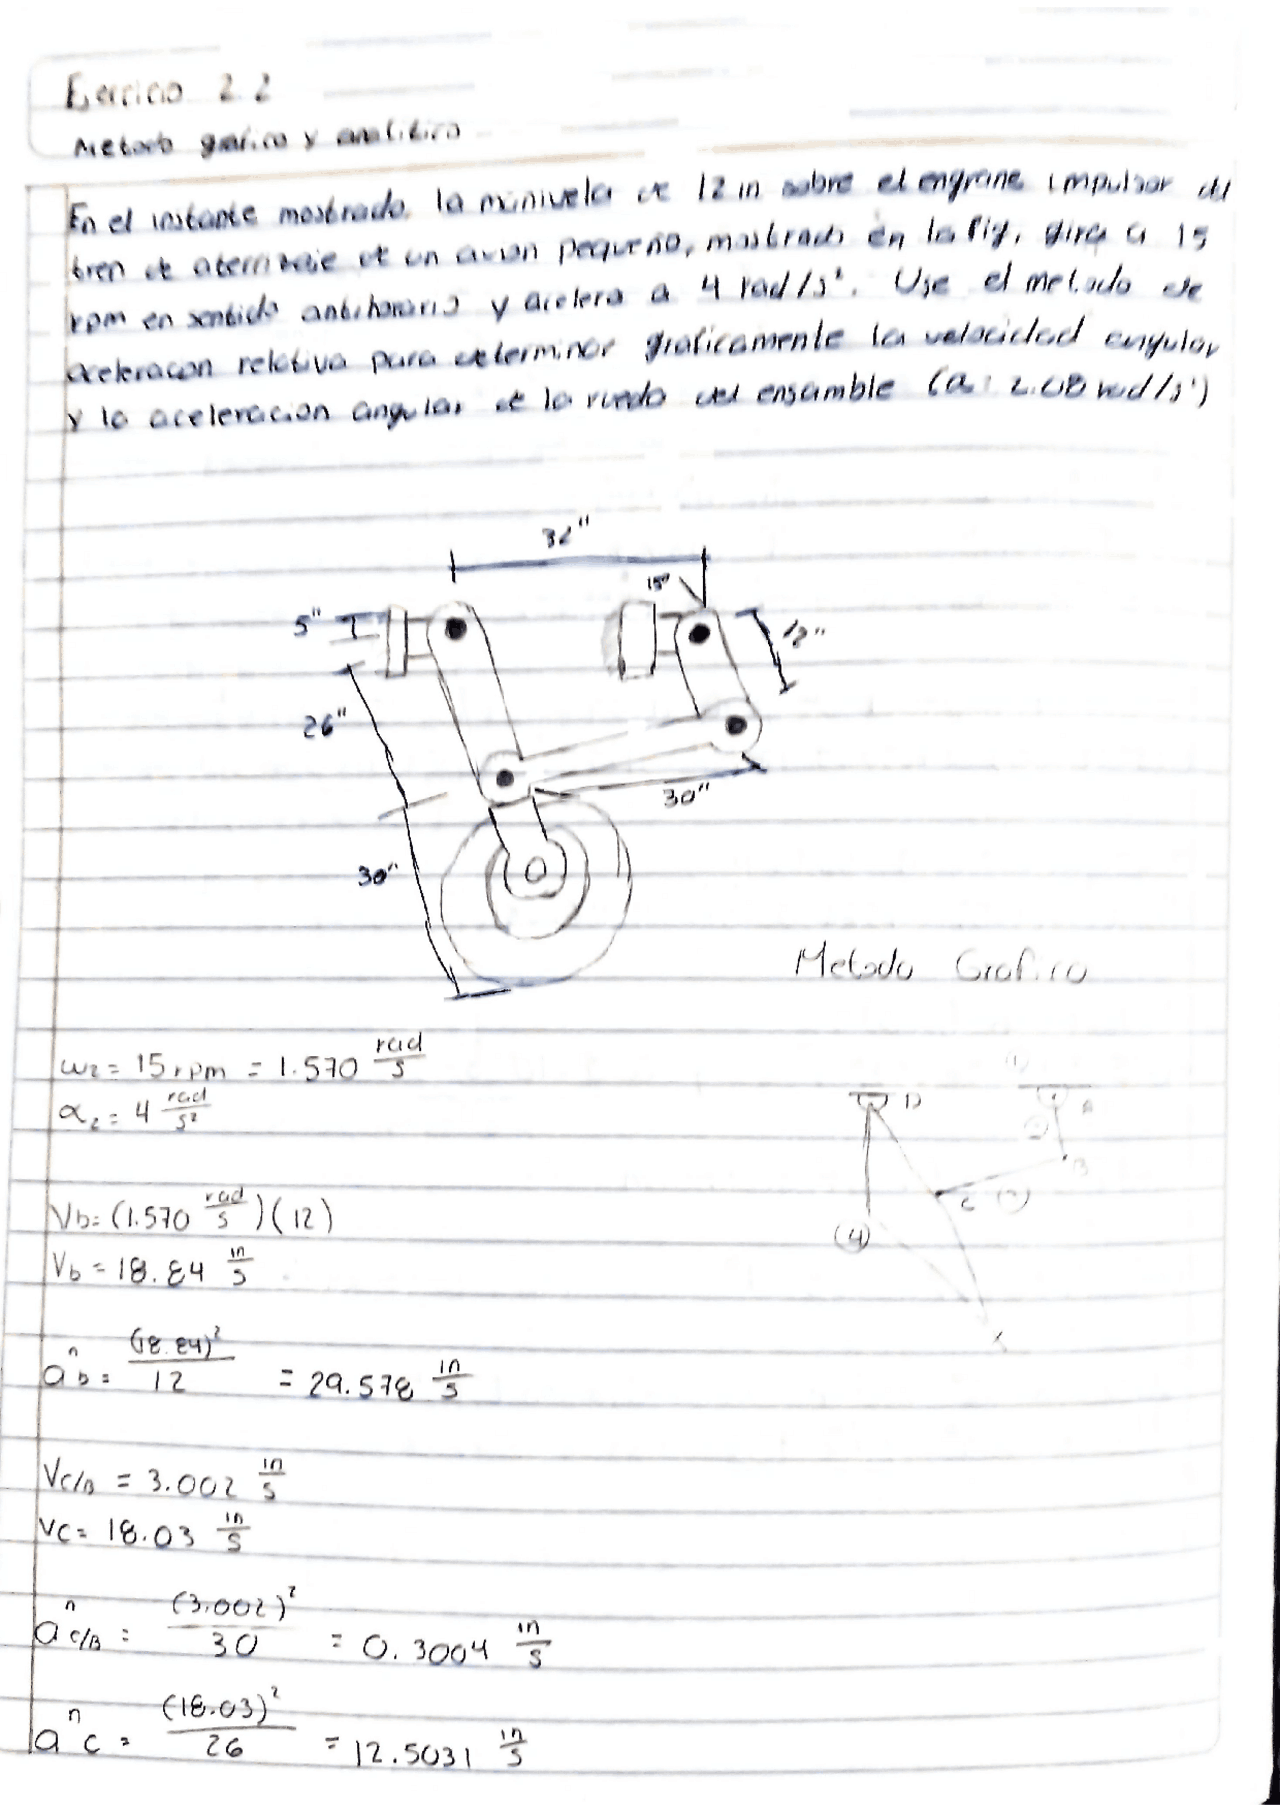 Ejercicio 2.2
Metodo grafico y analitico
En el instante mostrado, la manivela de 12 in sobre el engrane impulsor del
tren de aterrizaje de un avion pequeño, mostrado en la fig, gira a 15
rpm en sentido antihorario y acelera a 4 rad/s². Use el metodo de
aceleracion relativa para determinar graficamente la velocidad angular
y la aceleracion angular de la rueda del ensamble (a: 2.68 rad/s²)
32"
15°
5"
12"
26"
30"
30"
Metodo Grafico
ω2 = 15 rpm = 1.570 rad/s
α2 = 4 rad/s²
(1)
D A
(2)
B
C (3)
(4)
Vb = (1.570 rad/s)(12)
Vb = 18.84 in/s
a^n b = (18.84)²/12 = 29.578 in/s
Vc/B = 3.002 in/s
Vc = 18.03 in/s
a^n c/B = (3.002)²/30 = 0.3004 in/s
a^n c = (18.03)²/26 = 12.5031 in/s